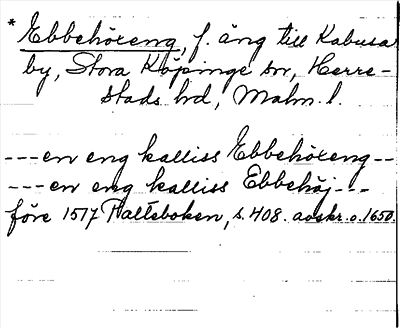 * Ebbehöxeng, f. äng till Kabusa
by, Stora Köpinge sn, Herre-
stads hd, Malm. l.
---en eng kalliss Ebbehöxeng--
---en eng kalliss Ebbehöj---
före 1517 Palteboken, s. 408. avskr. o. 1650.